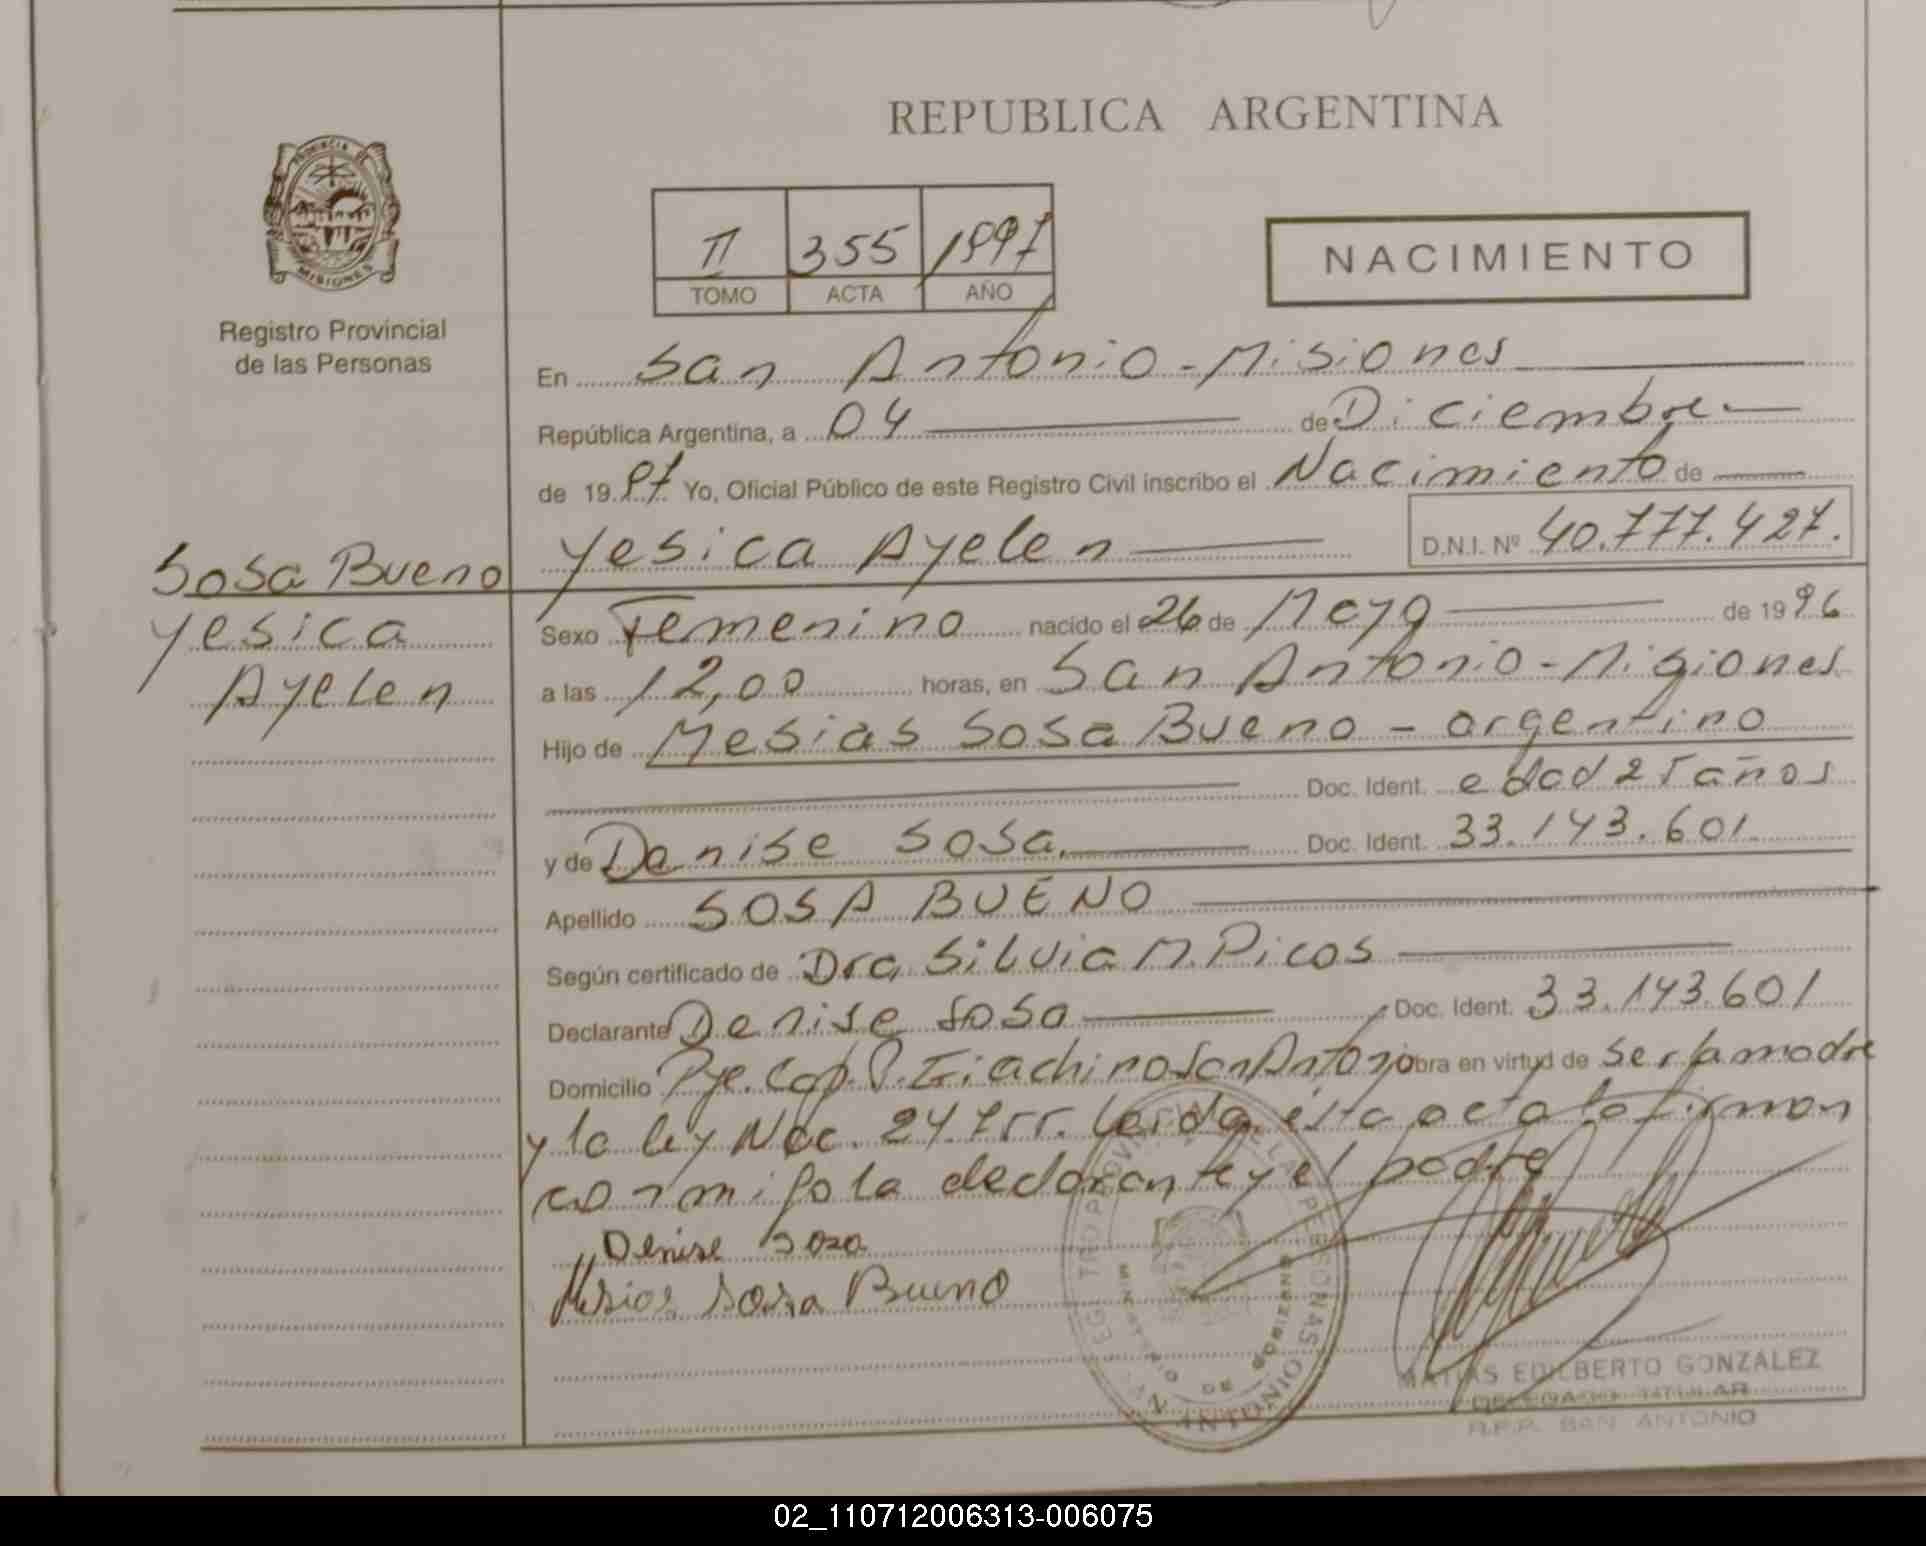 REPUBLICA ARGENTINA
PROVINCIA DE
MISIONES
Registro Provincial
de las Personas
II 355 1997
TOMO ACTA AÑO
NACIMIENTO
En San Antonio - Misiones
República Argentina, a 04 de Diciembre
de 1997 Yo, Oficial Público de este Registro Civil inscribo el Nacimiento de
Yesica Ayelen D.N.I. Nº 40.777.427.
Sosa Bueno
Yesica
Ayelen
Sexo Femenino nacido el 26 de Mayo de 1996
a las 12,00 horas, en San Antonio - Misiones
Hijo de Mesias Sosa Bueno - argentino
Doc. Ident. edad 25 años
y de Denise Sosa. Doc. Ident. 33.143.601
Apellido SOSA BUENO
Según certificado de Dra Silvia M. Picos
Declarante Denise Sosa Doc. Ident. 33.143.601
Domicilio Pje. Cap. P. Giachino San Antonio obra en virtud de ser la madre
y la ley Nac. Leida ésta acta la firman
conmigo la declarante y el padre
Denise Sosa
Mesias Sosa Bueno
MATIAS EDILBERTO GONZALEZ
DELEGADO TITULAR
R.P.P. SAN ANTONIO
02_110712006313-006075